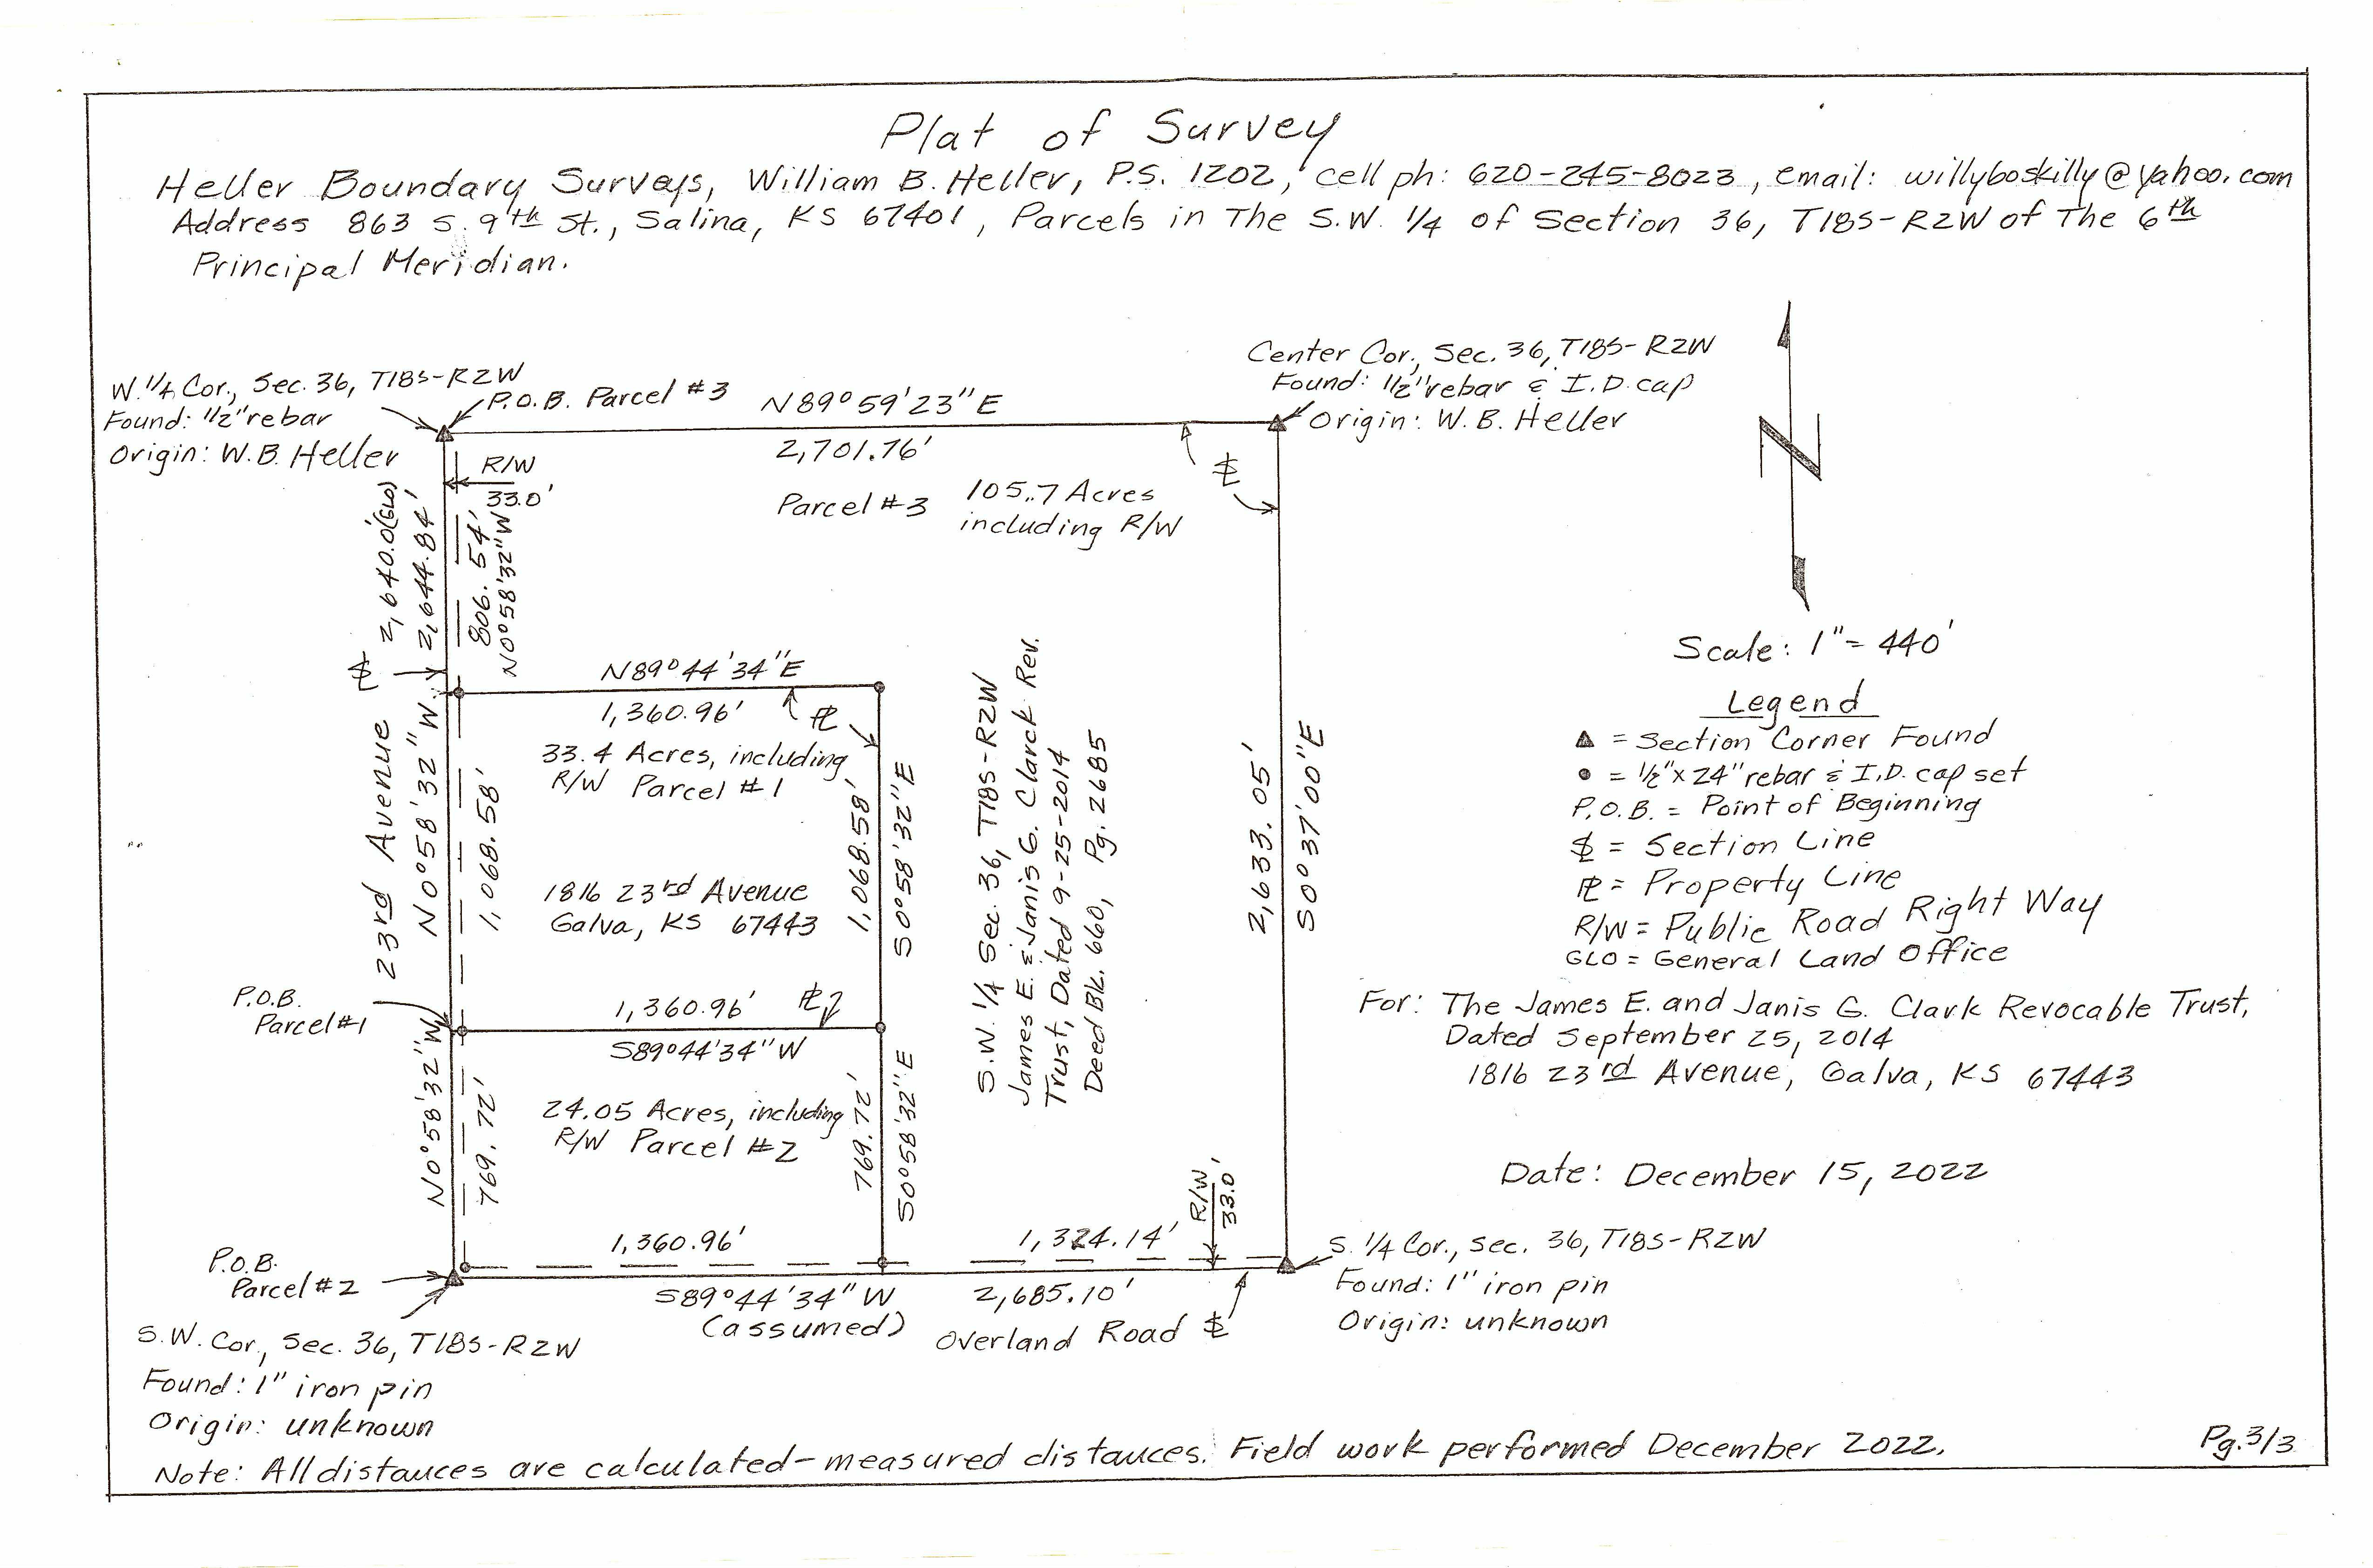 Plat of Survey
Heller Boundary Surveys, William B. Heller, P.S. 1202, cell ph: 620-245-8023, email: willyboskilly@yahoo.com
Address 863 S. 9th St., Salina, KS 67401, Parcels in The S.W. 1/4 of Section 36, T18S-R2W of The 6th
Principal Meridian.
W. 1/4 Cor., Sec. 36, T18S-R2W
Found: 1/2" rebar
Origin: W.B. Heller
P.O.B. Parcel #3
N89°59'23"E
2,701.76'
Center Cor., Sec. 36, T18S-R2W
Found: 1/2" rebar & I.D. cap
Origin: W.B. Heller
R/W
33.0'
Parcel #3
105.7 Acres
including R/W
2,640.0'(GLO)
2,644.84'
806.54'
N0°58'32"W
Scale: 1" = 440'
N89°44'34"E
1,360.96'
33.4 Acres, including
R/W Parcel #1
1816 23rd Avenue
Galva, KS 67443
23rd Avenue
N0°58'32"W
1,068.58'
1,068.58'
S0°58'32"E
S.W. 1/4 Sec. 36, T18S-R2W
James E. & Janis G. Clarck Rev.
Trust, Dated 9-25-2014
Deed Bk. 660, Pg. 2685
2,633.05'
S0°37'00"E
Legend
= Section Corner Found
= 1/2"x24" rebar & I.D. cap set
P.O.B. = Point of Beginning
= Section Line
PL = Property Line
R/W = Public Road Right Way
GLO = General Land Office
For: The James E. and Janis G. Clark Revocable Trust,
Dated September 25, 2014
1816 23rd Avenue, Galva, KS 67443
P.O.B.
Parcel #1
1,360.96'
PL
S89°44'34"W
N0°58'32"W
769.72'
24.05 Acres, including
R/W Parcel #2
769.72'
S0°58'32"E
R/W
33.0'
Date: December 15, 2022
P.O.B.
Parcel #2
1,360.96'
1,324.14'
S89°44'34"W
(assumed)
2,685.10'
Overland Road
S. 1/4 Cor., Sec. 36, T18S-R2W
Found: 1" iron pin
Origin: unknown
S.W. Cor., Sec. 36, T18S-R2W
Found: 1" iron pin
Origin: unknown
Note: All distances are calculated-measured distances. Field work performed December 2022.
Pg. 3/3